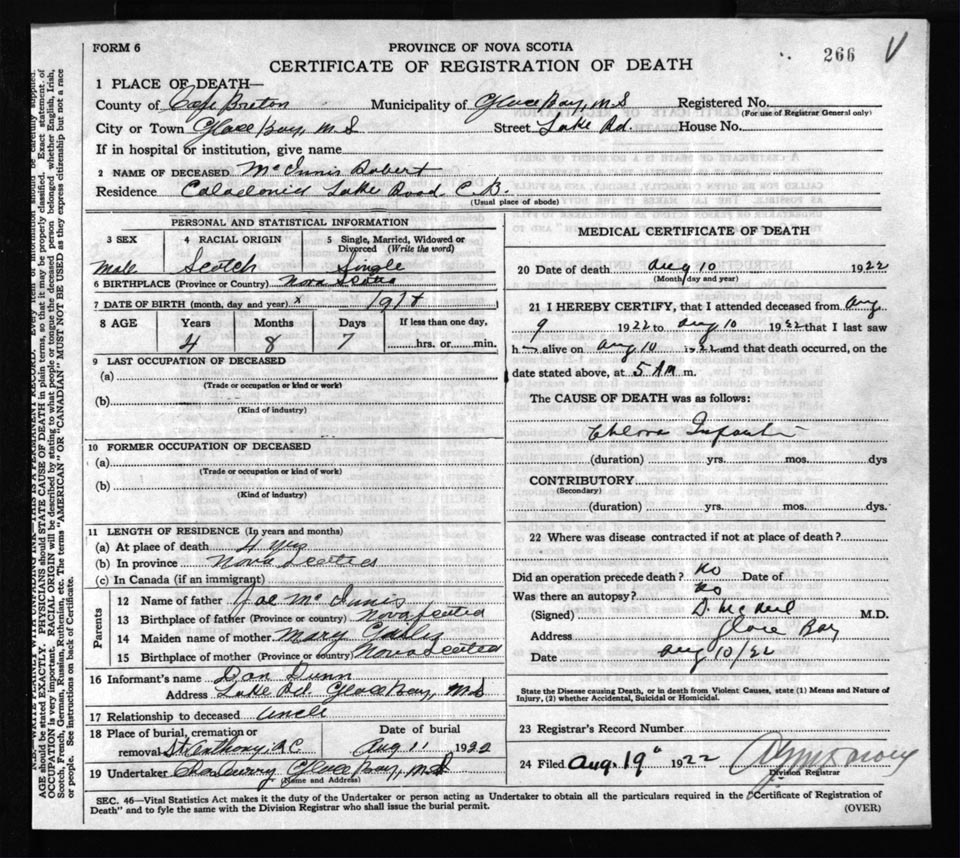 FORM 6
PROVINCE OF NOVA SCOTIA
CERTIFICATE OF REGISTRATION OF DEATH
266
V
1 PLACE OF DEATH—
County of Cape Breton Municipality of Glace Bay, N.S Registered No.
(For use of Registrar General only)
City or Town Glace Bay, N.S Street Lake Rd. House No.
If in hospital or institution, give name
2 NAME OF DECEASED McInnis Robert
Residence Caledonia Lake Road C.B.
(Usual place of abode)
PERSONAL AND STATISTICAL INFORMATION
3 SEX 4 RACIAL ORIGIN 5 Single, Married, Widowed or Divorced (Write the word)
Male Scotch Single
6 BIRTHPLACE (Province or Country) Nova Scotia
7 DATE OF BIRTH (month, day and year) x 1918
8 AGE Years Months Days If less than one day,
4 8 7 hrs. or min.
9 LAST OCCUPATION OF DECEASED
(a)
(Trade or occupation or kind or work)
(b)
(Kind of industry)
10 FORMER OCCUPATION OF DECEASED
(a)
(Trade or occupation or kind of work)
(b)
(Kind of industry)
11 LENGTH OF RESIDENCE (In years and months)
(a) At place of death 4 yrs
(b) In province Nova Scotia
(c) In Canada (if an immigrant)
Parents
12 Name of father Joe McInnis
13 Birthplace of father (Province or country) Nova Scotia
14 Maiden name of mother Mary
15 Birthplace of mother (Province or country) Nova Scotia
16 Informant's name Dan Dunn
Address Lake Rd. Glace Bay, N.S
17 Relationship to deceased Uncle
18 Place of burial, cremation or removal St. Anthony, R.C. Date of burial Aug 11 1922
19 Undertaker Glace Bay, N.S
(Name and Address)
MEDICAL CERTIFICATE OF DEATH
20 Date of death Aug 10 1922
(Month, day and year)
21 I HEREBY CERTIFY, that I attended deceased from Aug
9 1922 to Aug 10 1922 that I last saw
h alive on Aug 10 1922 and that death occurred, on the
date stated above, at 5 AM m.
The CAUSE OF DEATH was as follows:
Cholera
(duration) yrs. mos. dys
CONTRIBUTORY
(Secondary)
(duration) yrs. mos. dys.
22 Where was disease contracted if not at place of death?
Did an operation precede death? No Date of
Was there an autopsy? No
(Signed) D. McNeil M.D.
Address Glace Bay
Date Aug 10/22
State the Disease causing Death, or in death from Violent Causes, state (1) Means and Nature of
Injury, (2) whether Accidental, Suicidal or Homicidal.
23 Registrar's Record Number
24 Filed Aug. 19 1922
Division Registrar
SEC. 46—Vital Statistics Act makes it the duty of the Undertaker or person acting as Undertaker to obtain all the particulars required in the "Certificate of Registration of
Death" and to fyle the same with the Division Registrar who shall issue the burial permit.
(OVER)
AGE should be stated EXACTLY. PHYSICIANS should STATE CAUSE OF DEATH in plain terms, so that it may be properly classified. Exact statement of
OCCUPATION is very important. RACIAL ORIGIN will be described by stating to what people or tongue the deceased person belonged whether English, Irish,
Scotch, French, German, Russian, Ruthenian, etc. The terms "AMERICAN" OR "CANADIAN" MUST NOT BE USED as they express citizenship but not a race
or people. See instructions on back of Certificate.